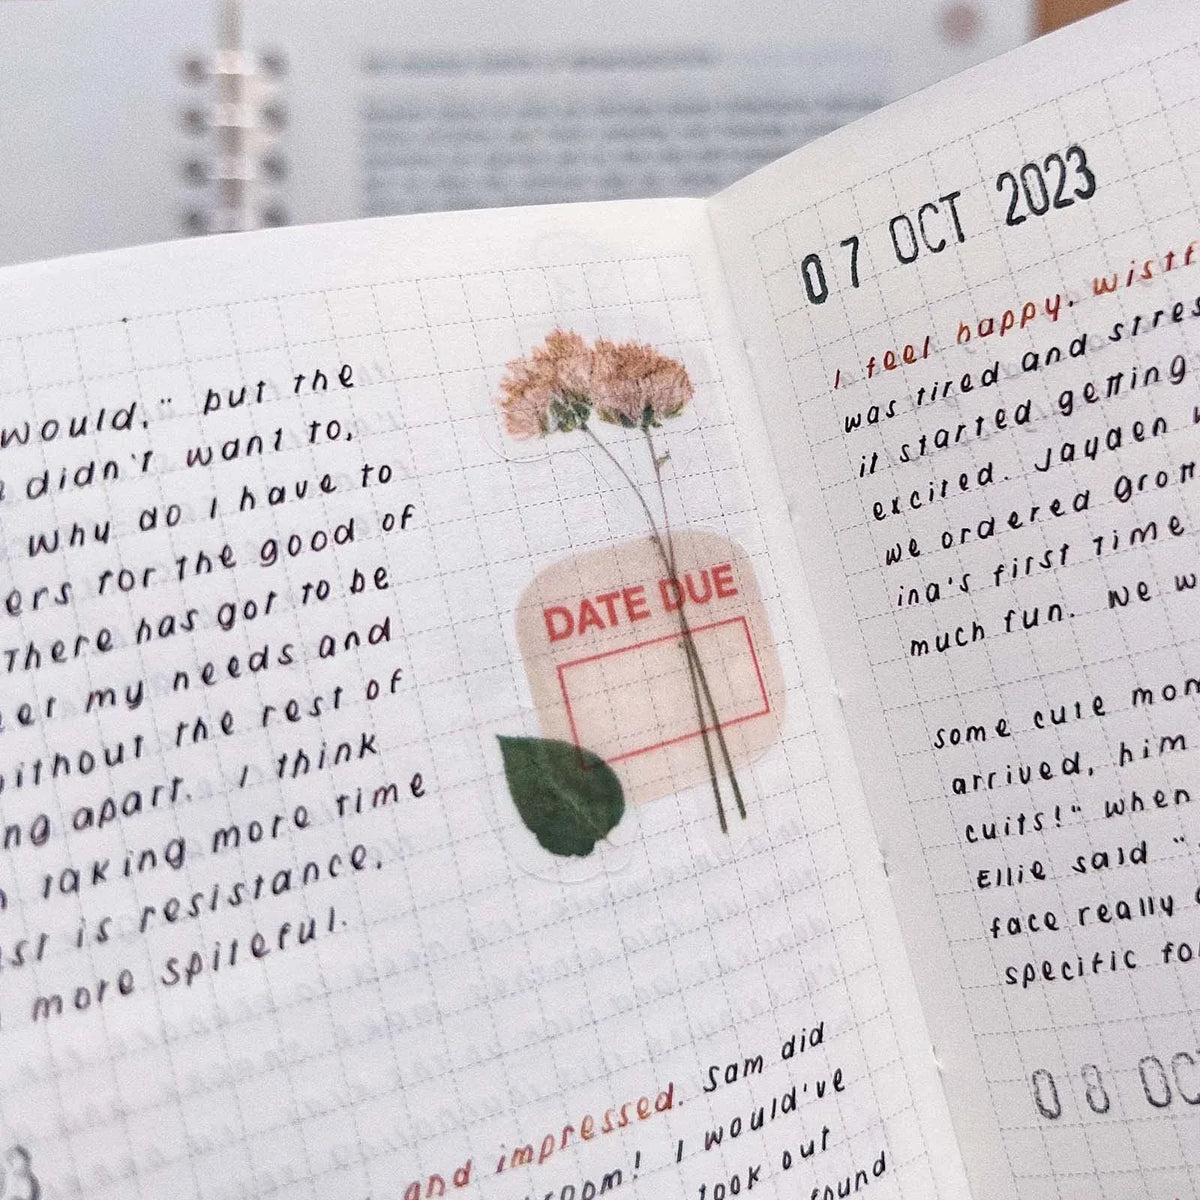 would," but the
didn't want to,
why do I have to
ers for the good of
There has got to be
my needs and
without the rest of
ng apart. I think
taking more time
is resistance,
more spiteful.
DATE DUE
and impressed. Sam did
I would've
took out
found
07 OCT 2023
I feel happy. wistf
was tired and stres
it started getting
excited. Jayden
we ordered
ina's first time
much fun. We w
some cute mom
arrived, him
cuits!" when
Ellie said "
face really
specific fo
08 OC